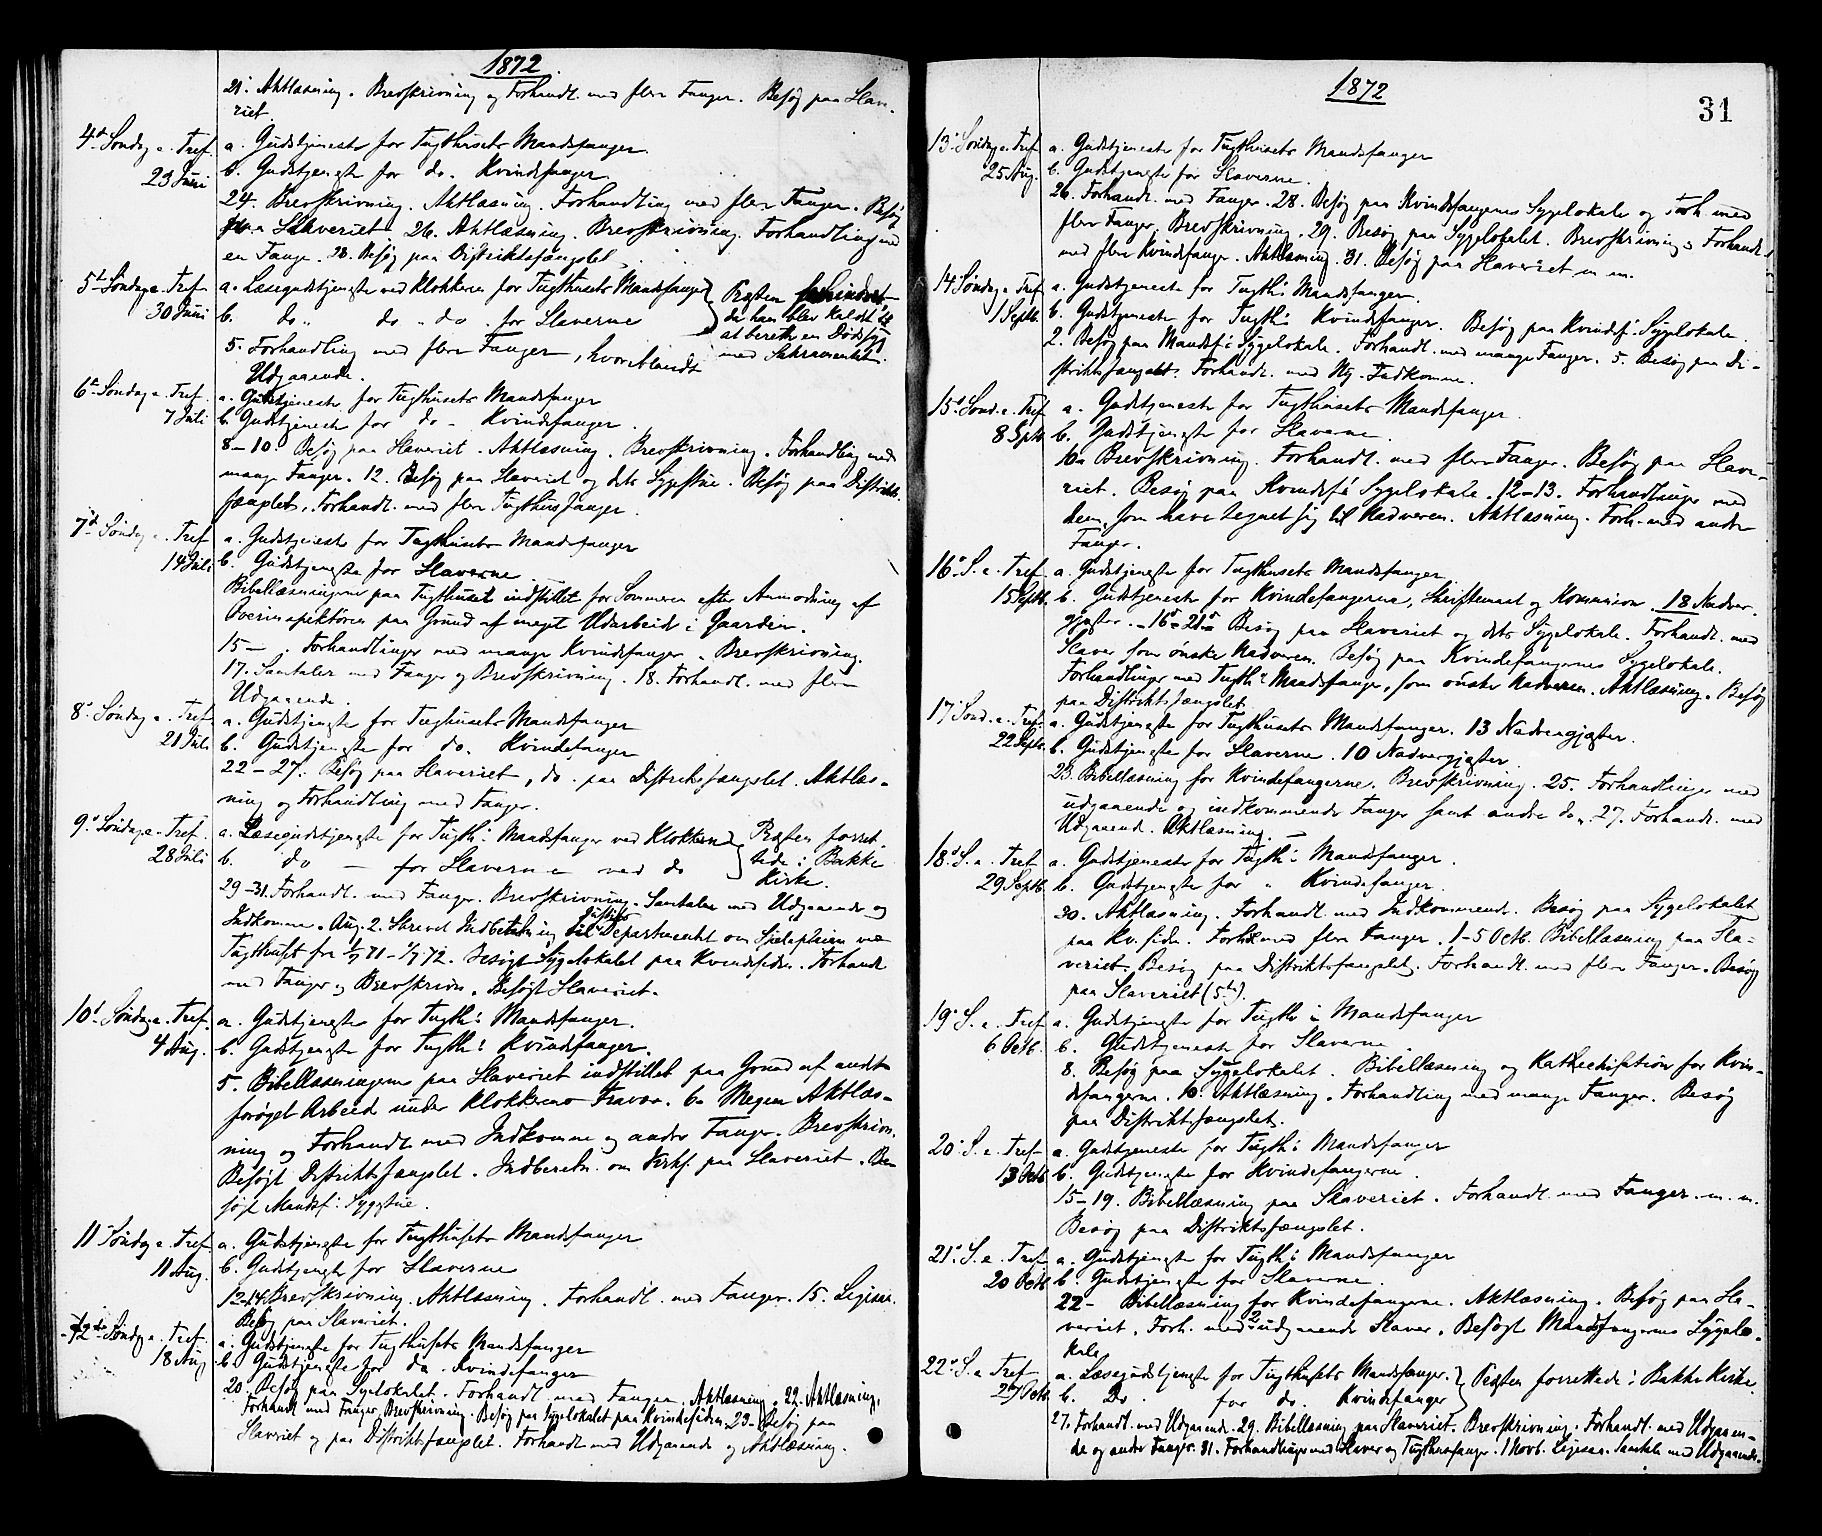 1872
21. Aktlæsning. Brevskrivning og Forhandl. med flere Fanger. Besøg paa Slave-
riet.
4de Søndag e. Tref. a. Gudstjeneste for Tugthusets Mandsfanger.
23 Juni b. Gudstjeneste for do. Kvindefanger
24. Brevskrivning. Aktlæsning. Forhandling med flere Fanger. Besøg
paa Slaveriet. 26. Aktlæsning. Brevskrivning. Forhandling med
en Fange. 28. Besøg paa Distriktsfængslet.
5te Søndag e. Tref. a. Læsegudstjeneste ved Klokkeren for Tugthusets Mandsfanger } Præsten forhindret
30 Juni b. do. do. do. for Slaverne da han blev kaldet til
at berette en Dødssyg
5. Forhandling med flere Fanger, hvoriblandt med Sakramentet.
Udgaaende.
6te Søndag e. Tref. a. Gudstjeneste for Tugthusets Mandsfanger
7 Juli b. Gudstjeneste for do. Kvindefanger.
8-10. Besøg paa Slaveriet. Aktlæsning. Brevskrivning. Forhandling med
mange Fanger. 12. Besøg paa Slaveriet og dets Sygestue. Besøg paa Distrikts-
fængslet. Forhandl. med flere Tugthusfanger.
7de Søndag e. Tref. a. Gudstjeneste for Tugthusets Mandsfanger
14 Juli b. Gudstjeneste for Slaverne.
Bibellæsningerne paa Tugthuset indstillet for Sommeren efter Anmodning af
Overinspektøren paa Grund af meget Udarbeide i Gaarden.
15 - . Forhandlinger med mange Kvindefanger. Brevskrivning.
17. Samtaler med Fanger og Brevskrivning. 18. Forhandl. med flere
Udgaaende.
8de Søndag e. Tref. a. Gudstjeneste for Tugthusets Mandsfanger
21 Juli b. Gudstjeneste for do. Kvindefanger
22-27. Besøg paa Slaveriet, do. paa Distriktsfængslet. Aktlæs-
ning og Forhandling med Fanger.
9de Søndag e. Tref. a. Læsegudstjeneste for Tugth: Mandsfanger ved Klokkeren } Præsten forret-
28 Juli b. do - for Slaverne ved do tede i Bakke
Kirke.
29-31. Forhandl. med Fanger. Brevskrivning. Samtaler med Udgaaende og
Indkomne. Aug. 2. Skrevet Indberetning til Justits Departementet om Sjælepleien ved
Tugthuset fra 1/7 71 - 1/7 72. Besøgt Sygelokalet paa Kvindesiden. Forhandl.
med Fanger og Brevskrivn. Besøgt Slaveriet.
10de Søndag e. Tref. a. Gudstjeneste for Tugth: Mandsfanger.
4 Aug. b. Gudstjeneste for Tugth: Kvindefanger.
5. Bibellæsningerne paa Slaveriet indstillet paa Grund af andet
forøget Arbeid under Klokkerens Fravær. 6. Megen Aktlæs-
ning og Forhandl. med Indkomne og andre Fanger. Brevskrivn.
Besøgt Distriktsfængslet. Indberetn. om Virks. paa Slaveriet. Be-
søgt Mandsf: Sygestue.
11 Søndag e. Tref. a. Gudstjeneste for Tugthusets Mandsfanger
11 Aug. b. Gudstjeneste for Slaverne
12-14. Brevskrivning. Aktlæsning. Forhandl. med Fanger. 15.
Besøg paa Slaveriet.
12te Søndag e. Tref. a. Gudstjeneste for Tugthusets Mandsfanger
18 Aug b. Gudstjeneste for do. Kvindefanger
20. Besøg paa Sygelokalet. Forhandl. med Fanger. Aktlæsning. 22. Aktlæsning.
Forhandl. med Fanger. Brevskrivning. Besøg paa Sygelokalet paa Kvindesiden. 23. Besøg paa
Slaveriet og paa Distriktsfængslet. Forhandl. med Udgaaende og Aktlæsning.
1872
31
13 Søndag e. Tref. a. Gudstjeneste for Tugthusets Mandsfanger
25 Aug. b. Gudstjeneste for Slaverne.
26. Forhandl. med Fanger. 28. Besøg paa Kvindefangernes Sygelokale og Forh. med
flere Fanger. Brevskrivning. 29. Besøg paa Sygelokalet. Brevskrivning. Forhandl.
med flere Kvindefanger. Aktlæsning. 31. Besøg paa Slaveriet m. m.
14 Søndag e. Tref. a. Gudstjeneste for Tugth: Mandsfanger.
1 Septb. b. Gudstjeneste for Tugth: Kvindefanger. Besøg paa Kvindef: Sygelokale.
2. Besøg paa Mandsf: Sygelokale. Forhandl. med mange Fanger. 5. Besøg paa Di-
striktsfængslet. Forhandl. med Ny-Indkomne.
15de Sønd. e. Tref. a. Gudstjeneste for Tugthusets Mandsfanger.
8 Septb. b. Gudstjeneste for Slaverne.
10. Brevskrivning. Forhandl. med flere Fanger. Besøg paa Slave-
riet. Besøg paa Kvindef: Sygelokale. 12-13. Forhandlinger med
dem, som have tegnet sig til Nadveren. Aktlæsning. Forh. med andre
Fanger.
16de S. e. Tref. a. Gudstjeneste for Tugthusets Mandsfanger
15 Septb. b. Gudstjeneste for Kvindefangerne, Skriftemaal og Kommunion. 18 Nadver-
gjæster. - 16-21. Besøg paa Slaveriet og dets Sygelokale. Forhandl. med
Slaver som ønske Nadveren. Besøg paa Kvindefangernes Sygelokale.
Forhandlinger med Tugth: Mandsfanger, som ønske Nadveren. Aktlæsning. Besøg
paa Distriktsfængslet
17 Sønd. e. Tref. a. Gudstjeneste for Tugthusets Mandsfanger. 13 Nadvergjæster.
22 Septb. b. Gudstjeneste for Slaverne. 10 Nadvergjæster.
23. Bibellæsning for Kvindefangerne. Brevskrivning. 25. Forhandlinger med
udgaaende og indkommende Fanger samt andre do. 27. Forhandl. med
Udgaaende. Aktlæsning.
18de S. e. Tref. a. Gudstjeneste for Tugth: Mandsfanger.
29 Septb. b. Gudstjeneste for " Kvindefanger.
30. Aktlæsning. Forhandl. med Indkommende. Besøg paa Sygelokalet
paa Kv. siden. Forh. med flere Fanger. 1-5 Octb. Bibellæsning paa Sla-
veriet. Besøg paa Distriktsfængslet. Forhandl. med flere Fanger. Besøg
paa Slaveriet (5te).
19de S. e. Tref. a. Gudstjeneste for Tugth: Mandsfanger
6 Octb. b. Gudstjeneste for Slaverne.
8. Besøg paa Sygelokalet. Bibellæsning og Kathechisation for Kvin-
defangerne. 10. Aktlæsning. Forhandling med mange Fanger. Besøg
paa Distriktsfængslet.
20de S. e. Tref. a. Gudstjeneste for Tugth: Mandsfanger
13 Octb b. Gudstjeneste for Kvindefangerne.
15-19. Bibellæsning paa Slaveriet. Forhandl. med Fanger m. m.
Besøg paa Distriktsfængslet.
21de S. e. Tref. a. Gudstjeneste for Tugth: Mandsfanger
20 Octb b. Gudstjeneste for Slaverne.
22- Bibellæsning for Kvindefangerne. Aktlæsning. Besøg paa Sla-
veriet. Forh. med 2 udgaaende Slaver. Besøgt Mandsfangernes Sygelo-
kale.
22de S. e. Tref. a. Læsegudstjeneste for Tugthusets Mandsfanger. } Præsten forrettede i Bakke Kirke.
27 Octb. b. Do. for do. Kvindefanger
27. Forhandl. med Udgaaende. 29. Bibellæsning paa Slaveriet. Brevskrivning. Forhandl. med Udgaaen-
de og andre Fanger. 31. Forhandlinger med Slaver og Tugthusfanger. 1 Novb. Samtale med Udgaaende.